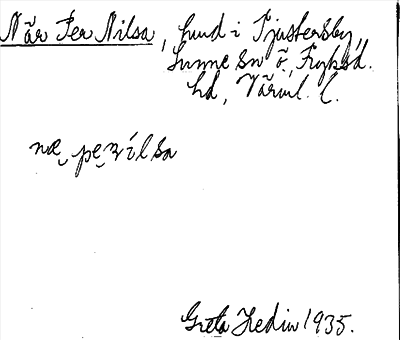 När Per Nilsa, hund i Tjustersby,
Sunne sn o, Fryksd.
hd, Värml. l.
næ pernilsa
Greta Hedin 1935.